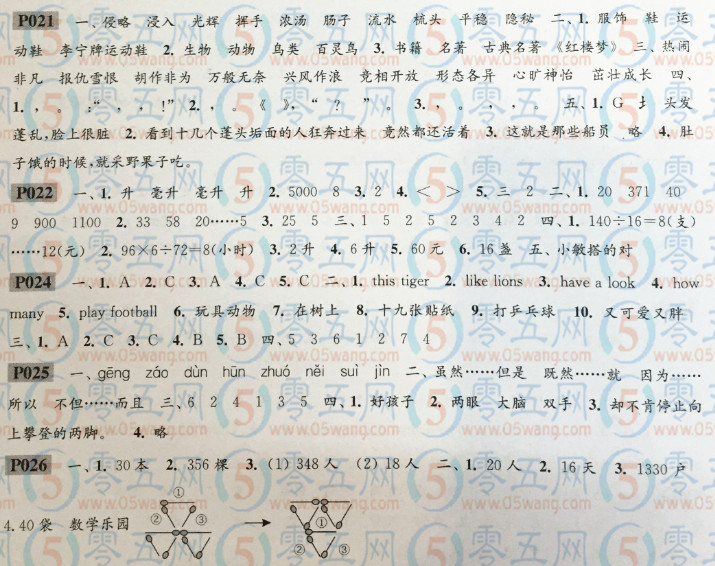 P021 一、侵略 浸入 光辉 挥手 浓汤 肠子 流水 梳头 平稳 隐秘 二、1. 服饰 鞋 运
动鞋 李宁牌运动鞋 2. 生物 动物 鸟类 百灵鸟 3. 书籍 名著 古典名著 《红楼梦》 三、热闹
非凡 报仇雪恨 胡作非为 万般无奈 兴风作浪 竞相开放 形态各异 心旷神怡 茁壮成长 四、
1. , 。 :“ , , !” 2. , 。 《 》, “ ? ” 。 3. , 。 , , 。 五、1. G 扌 头发
蓬乱,脸上很脏 2. 看到十几个蓬头垢面的人狂奔过来 竟然都还活着 3. 这就是那些船员 略 4. 肚
子饿的时候,就采野果子吃。
P022 一、1. 升 毫升 毫升 升 2. 5000 8 3. 2 4. < > 5. 三 2 二、1. 20 371 40
9 900 1100 2. 33 58 20……5 3. 25 5 三、1 5 2 5 2 3 4 2 四、1. 140÷16=8(支)
……12(元) 2. 96×6÷72=8(小时) 3. 2升 4. 6升 5. 60元 6. 16盏 五、小敏搭的对
P024 一、1. A 2. C 3. A 4. C 5. C 二、1. this tiger 2. like lions 3. have a look 4. how
many 5. play football 6. 玩具动物 7. 在树上 8. 十九张贴纸 9. 打乒乓球 10. 又可爱又胖
三、1. A 2. C 3. C 4. B 5. B 四、5 3 6 1 2 7 4
P025 一、gēng záo dùn hūn zhuó něi suì jìn 二、虽然……但是 既然……就 因为……
所以 不但……而且 三、6 2 4 1 3 5 四、1. 好孩子 2. 两眼 大脑 双手 3. 却不肯停止向
上攀登的两脚。 4. 略
P026 一、1. 30本 2. 356棵 3. (1) 348人 (2) 18人 二、1. 20人 2. 16天 3. 1330户
4. 40袋 数学乐园 ① ② ③ ① ② ③
零五网
www.05wang.com